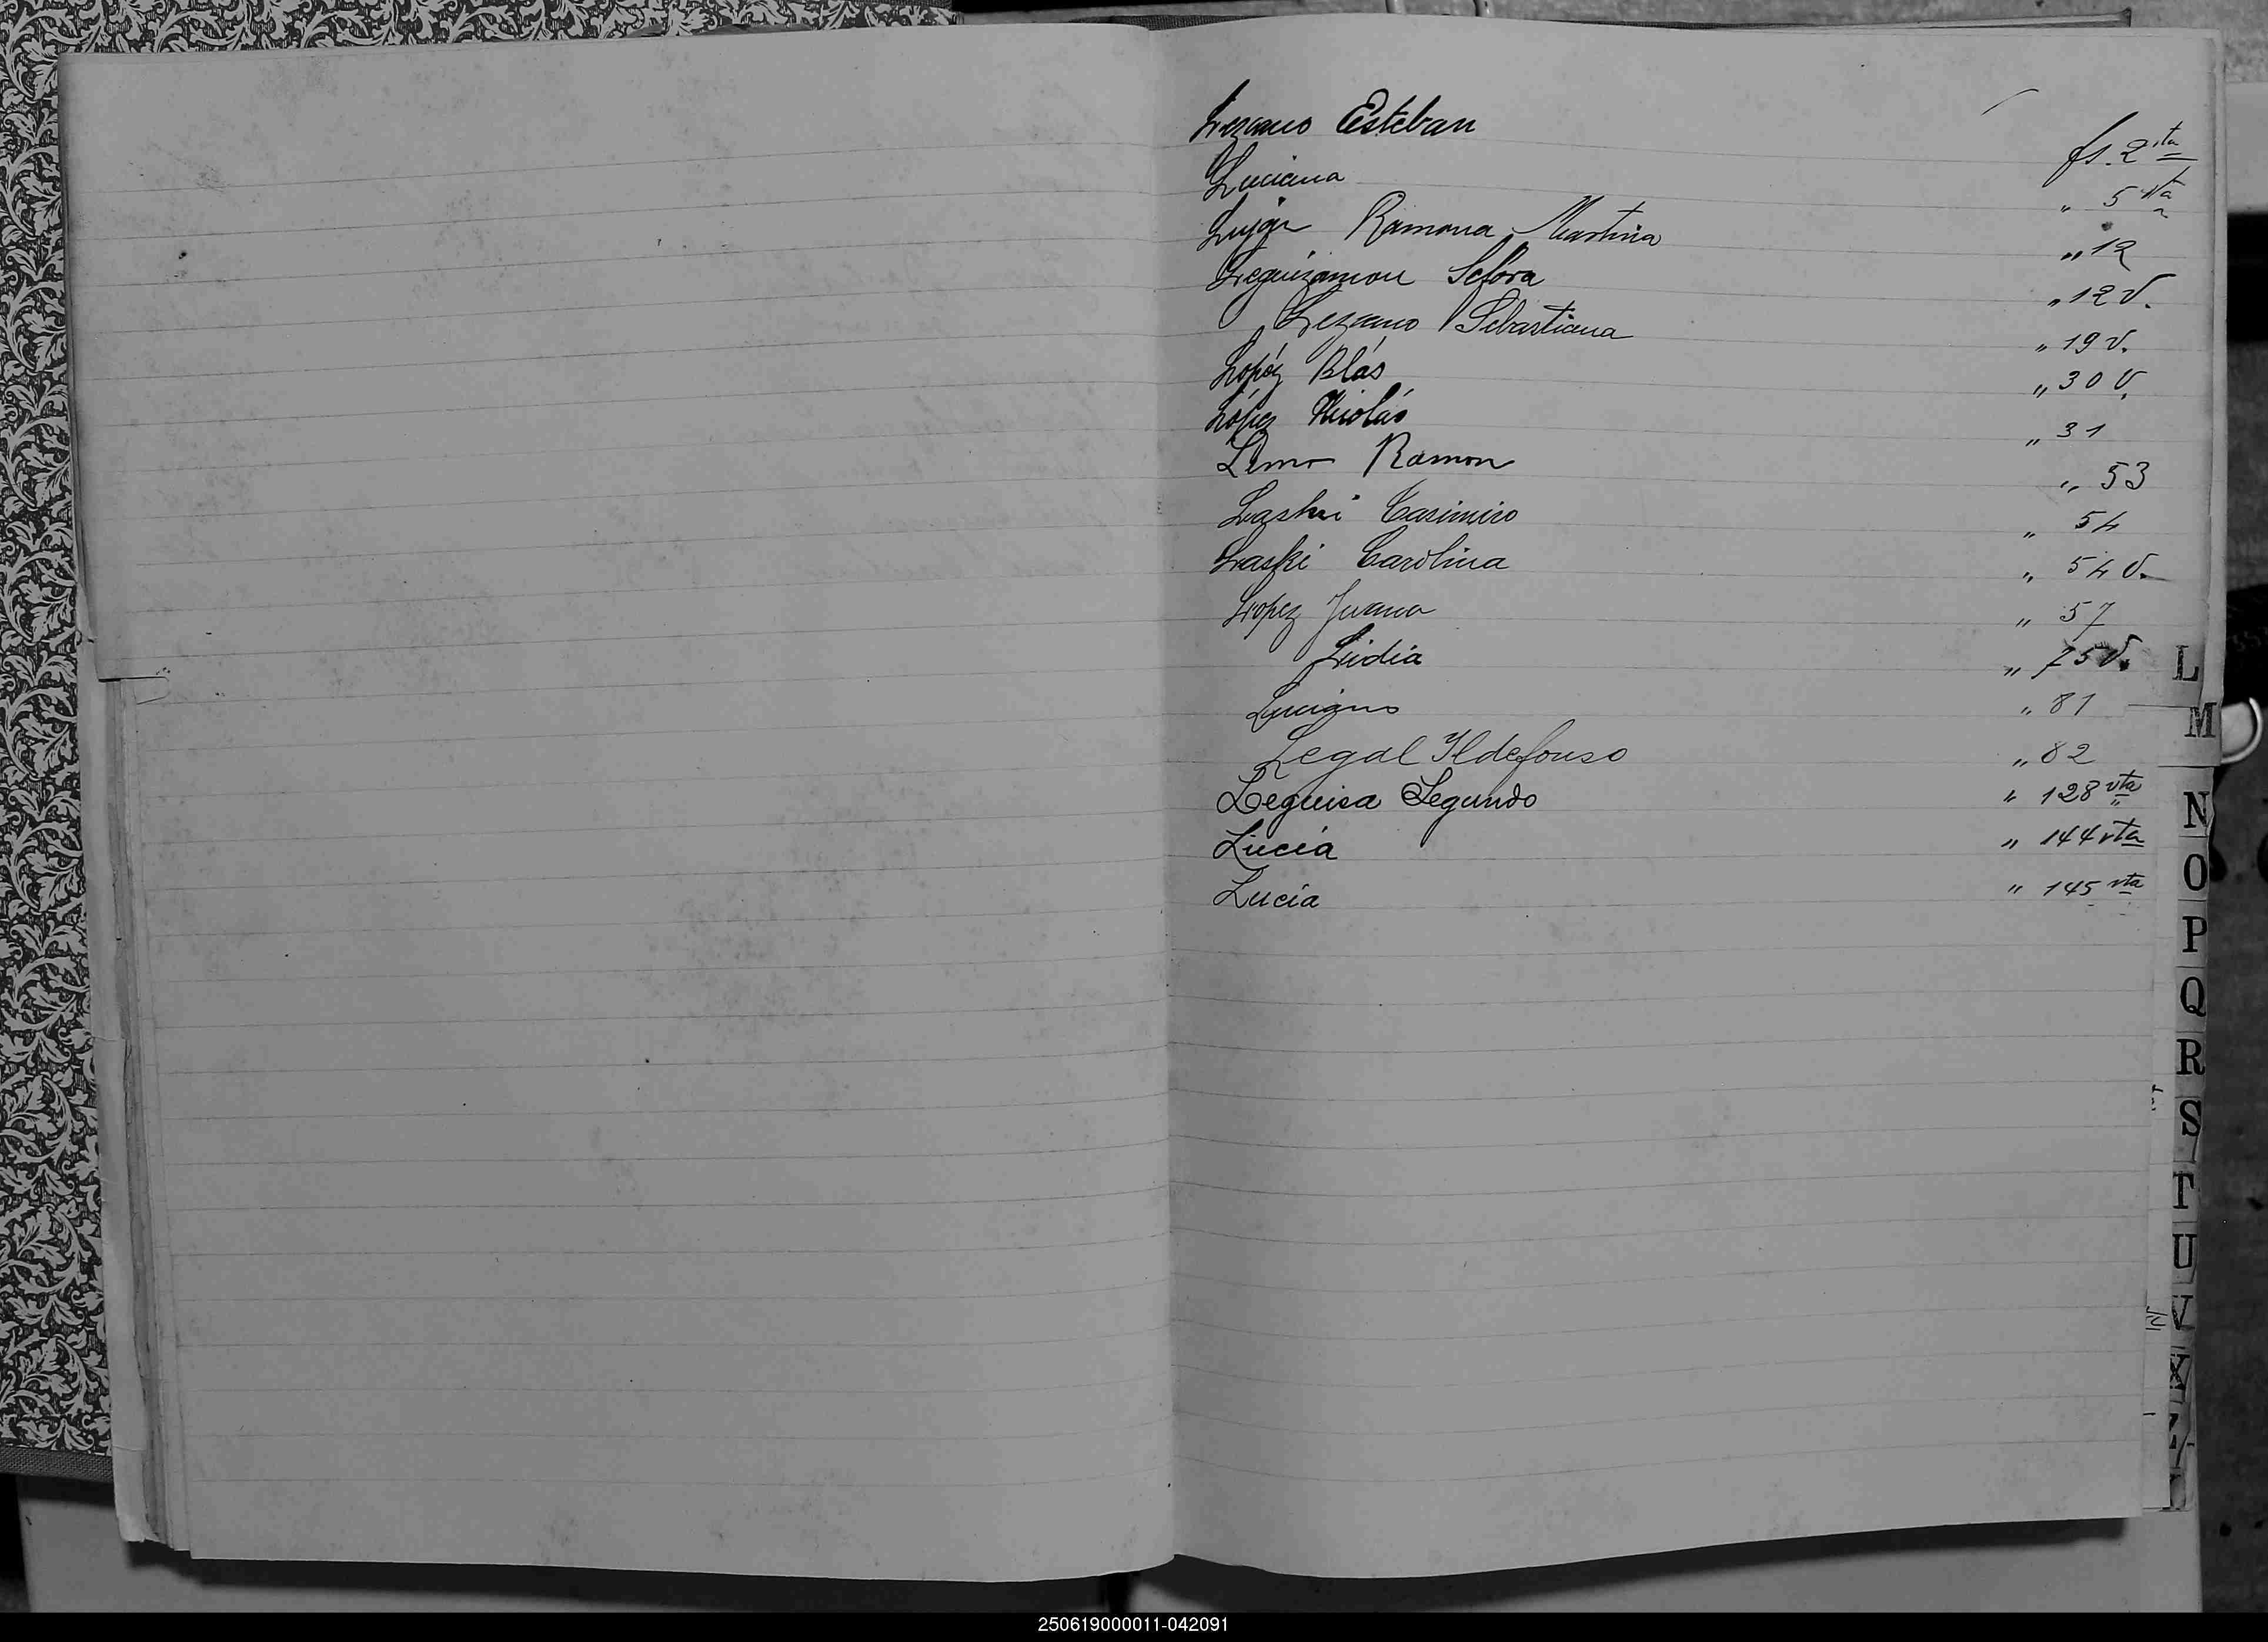 Lezcano Esteban fs. 2 vta
Luciana " 5 vta
Luján Ramona Martina " 12
Leguizamon Sefora " 12 v.
Lezcano Sebastiana " 19 v.
Lopéz Blás " 30 v.
López Nicolás " 31
Lemo Ramon " 53
Laski Casimiro " 54
Laski Carolina " 54 v.
Lopez Juana " 57
Lidia " 75 v.
Luciano " 81
Legal Ildefonso " 82
Leguisa Segundo " 128 vta
Lucía " 144 vta
Lucía " 145 vta
L
M
N
O
P
Q
R
S
T
U
V
X
Z
250619000011-042091